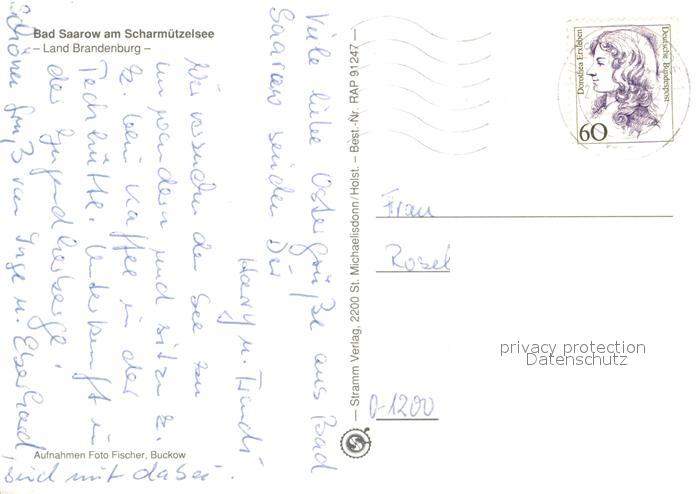 Bad Saarow am Scharmützelsee
– Land Brandenburg –
Viele liebe Ostergrüße aus Bad
Saarow senden Dir
Harry u. Trudi
Wir versuchen den See zu
umwandern und sitzen z.
Z. beim Kaffee in der
Unterkunft in
der Jugendherberge!
Schönen Gruß von Inge u. Eberhard,
sind mit dabei.
Aufnahmen Foto Fischer, Buckow
— Stramm Verlag, 2200 St. Michaelisdonn/Holst. — Best.-Nr. RAP 91247 —
Dorothea Erxleben
Deutsche Bundespost
60
Frau
Rosel
O-1200
privacy protection
Datenschutz